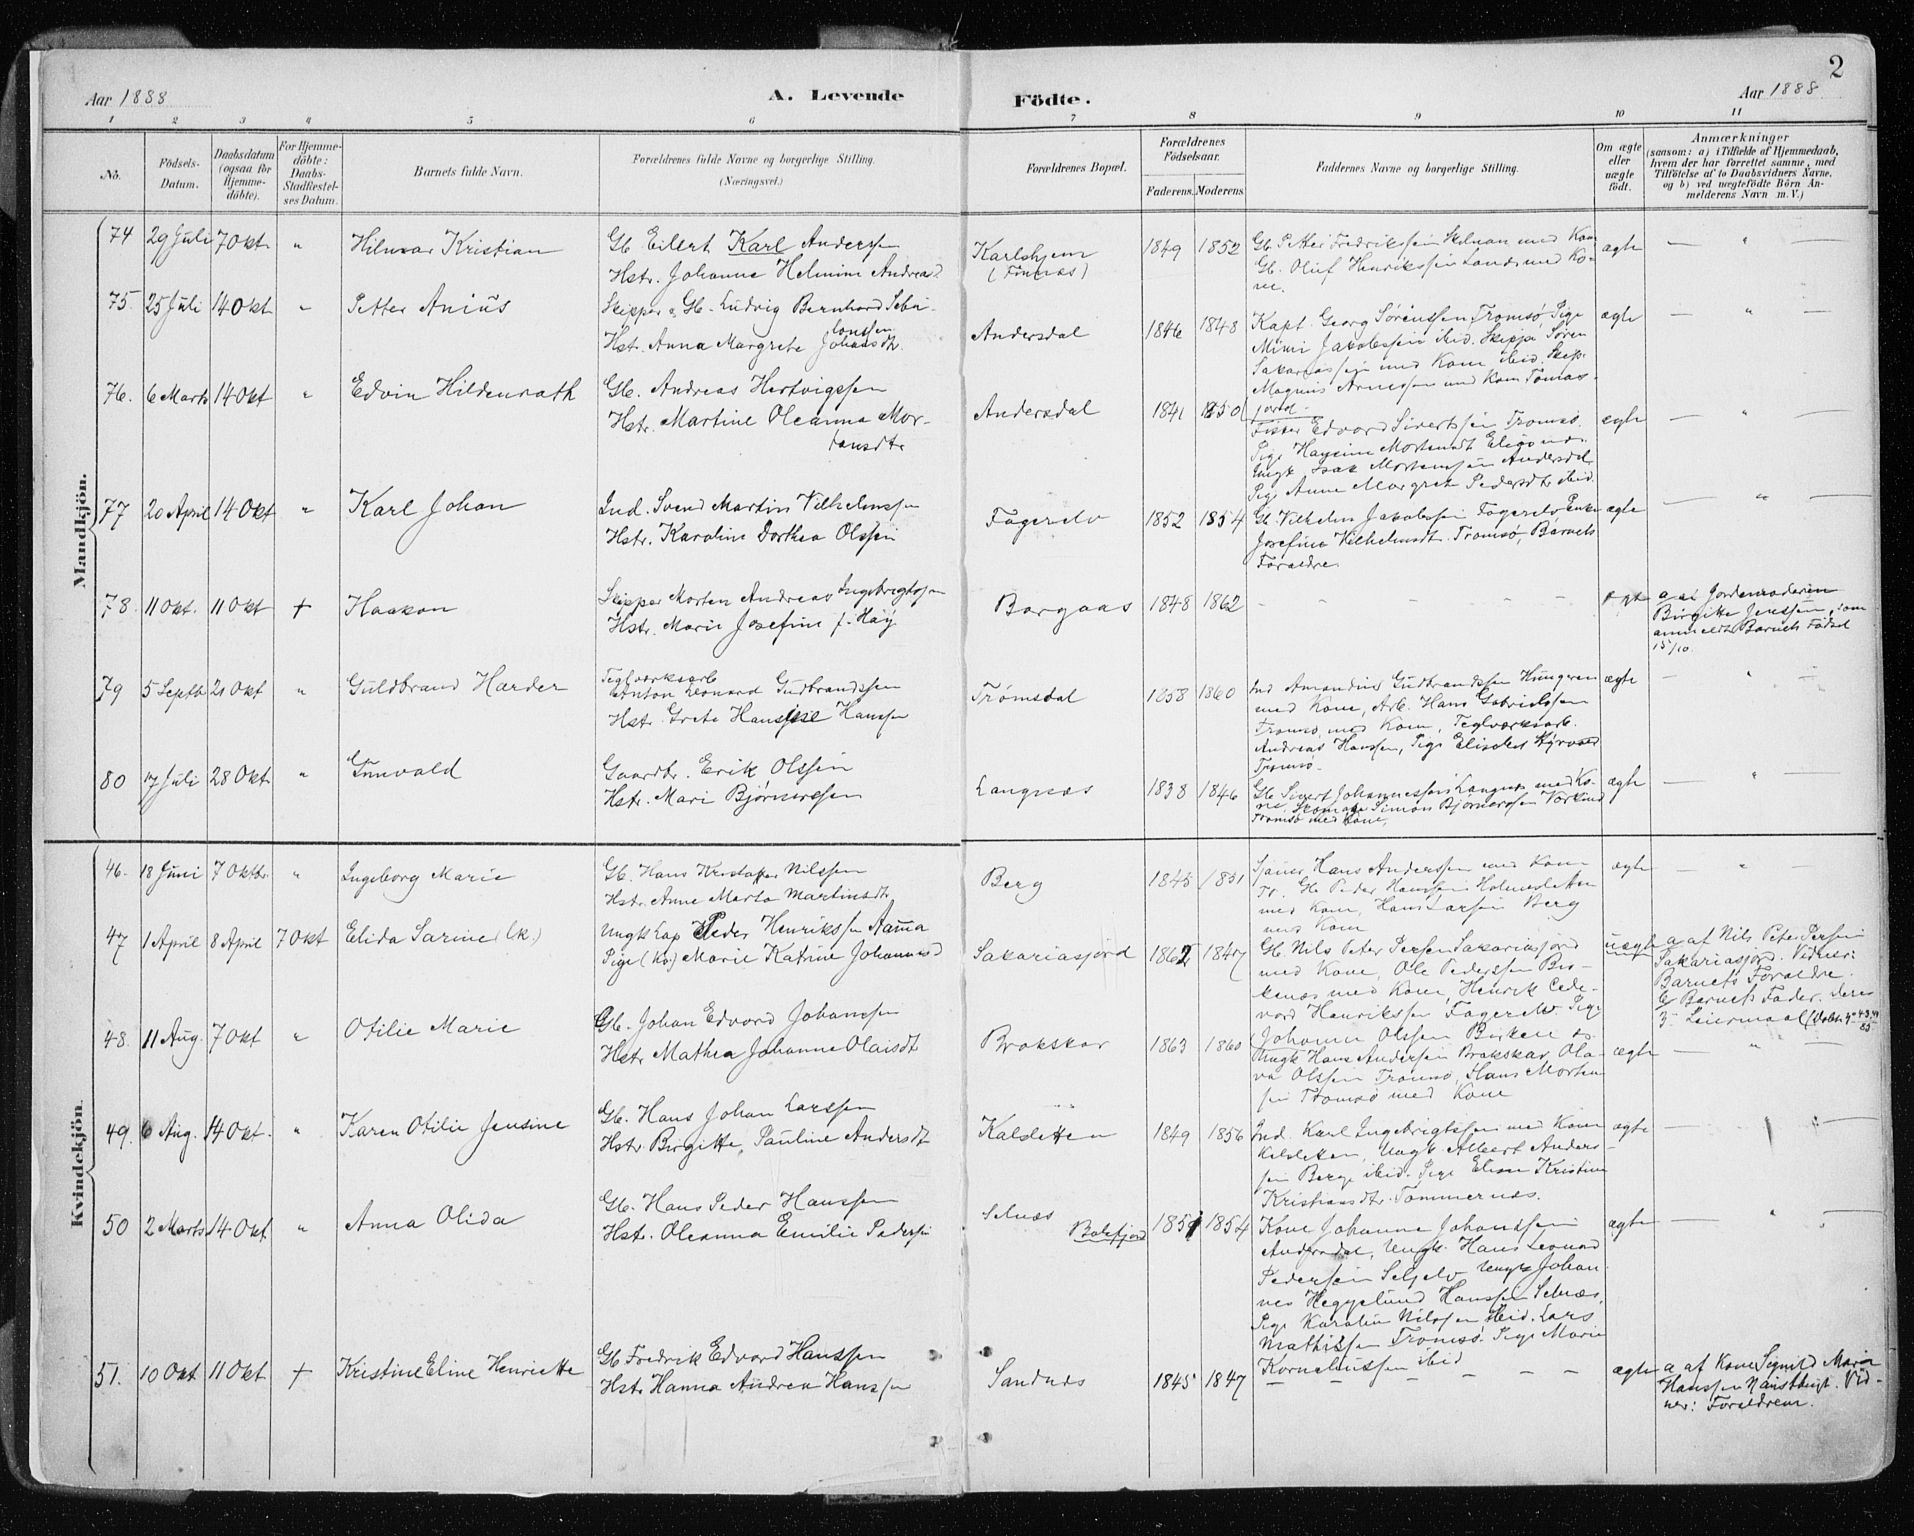 2
Aar 1888
A. Levende
Födte.
Aar 1888
1 2 3 4 5 6 7 8 9 10 11
No.
Födsels-
Datum.
Daabsdatum
(ogsaa for
Hjemme-
döbte).
For Hjemme-
döbte:
Daabs-
Stadfæstel-
ses Datum.
Barnets fulde Navn.
Forældrenes fulde Navne og borgerlige Stilling.
(Næringsvei.)
Forældrenes Bopæl.
Forældrenes
Födselsaar.
Faderens.
Moderens.
Faddernes Navne og borgerlige Stilling.
Om ægte
eller
uægte
födt.
Anmærkninger
(saasom: a) i Tilfælde af Hjemmedaab,
hvem der har forrettet samme, med
Tilföielse af to Daabsvidners Navne,
og b) ved uægtefödte Börn An-
melderens Navn m. V.)
Mandkjön.
74 29 Juli 7 Okt. " Hilmar Kristian
Gb. Eilert Karl Anderssen
Hstr. Johanne Helmine Andreasd.
Karlshjem
(Finnæs)
1849 1852
Gb. Petter Fredrikssen med Kone
Gb. Oluf Henrikssen med Ko-
ne.
ægte — " —
75. 25 Juli 14 Okt " Petter Anius
Skipper & Gb. Ludvig Bernhard Seba-
lonssen
Hst. Anna Margrete Johansdt.
Andersdal
1846 1848
Kapt. Georg Sørenssen, Tromsø, Pige
Mimi Jakobssen ibid. Skipp. Søren
Sakariassen med Kone ibid. Skip.
Magnus Arnessen med Kone Tomas-
jord.
ægte — " —
76. 6 Marts 14 Okt " Edvin Hildenrath
Gb. Andreas Hertvigssen
Hstr. Martine Oleanna Mor-
tensdtr
Andersdal
1841 1850
Fisker Edvard Sivertssen Tromsø.
Pige Mortensdt
Ungk. Isak Mortenssen Andersdal
Pig. Anne Margrete Pedersdtr ibid.
ægte — " —
77 20 April 14 Okt " Karl Johan
Ind. Svend Martin Vilhelmssen
Hstr. Karoline Dorthea Olssen
Fagerelv
1852 1854
Gb. Vilhelm Jakobssen Fagerelv Enke
Josefine Vilhelmsdt. Tromsø, Barnets
Forældre
ægte — " —
78. 11 Okt. 11 Okt + Haakon
Skipper Morten Andreas Ingebrigtssen
Hstr. Marie Josefine f. Høy
Bergaas
1848 1862
- - - - - -
ægte
a af Jordemoderen
Birgitte Jenssen, som
anmeldte Barnets Födsel
15/10.
79 5 Septb. 21 Okt " Guldbrand Harder
Teglverksarb.
Anton Leonard Gudbrandssen
Hstr. Grete Hansine Hanssen
Tromsdal
1858 1860
Ind Amandus Gudbrandssen Hungeren
med Kone, Arb. Hans Gabrielssen
Tromsø, med Kone, Teglværksarb.
Andreas Hanssen, Pige Elisabet
Tromsø.
ægte — " —
80 17 Juli 28 Okt " Gunvald
Gaardbr. Erik Olssen
Hstr. Mari Bjørnerssen
Langnæs
1838 1846
Gb Sivert Johannessen Langnæs med Ko-
ne, Simon Bjørnerssen
Tromsø med Kone,
ægte — " —
Kvindekjön.
46. 18 Juni 7 Oktbr. " Ingeborg Marie
Gb. Hans Kristoffer Nilssen
Hstr. Anne Marta Martinsdt.
Berg
1845 1851
Sjauer Hans Anderssen med Kone
Tr. Gb Peder Hanssen Holmesletten
med Kone, Hans Larssen Berg
med Kone
ægte — " —
47 1 April 8 April 7 Okt Elida Sarine (lk.)
Ungk Lap Peder Henrikssen Nama
Pige (Kv.) Marie Katrine Johannesd
Sakariasjord
1862 1847
Gb. Nils Peter Perssen Sakariasjord
med Kone, Ole Pederssen Bir-
kenæs med Kone, Henrik Ede-
vard Henrikssen Fagerelv Pige
Johanna Olssen Birken
uægte
a af Nils Peter Perssen
Sakariasjord. Vidner:
Barnets Forældre.
b Barnets Fader. deres
3' Leiermaal
48. 11 Aug. 7 Okt " Otilie Marie
Gb. Johan Edvard Johanssen
Hstr Mathea Johanne Olaisdt
Brokskar
1863 1860
Ungk Hans Anderssen Brokskar, Ola-
va Olssen Tromsø, Hans Morten-
sen Tromsø med Kone
ægte — " —
49. 6 Aug. 14 Okt. " Karen Otilie Jensine
Gb. Hans Johan Larssen
Hstr. Birgitte Pauline Andersdt
Kalsletten
1849 1856
Ind. Karl Ingebrigtssen med Kone
Kalsletten, Ungk. Albert Anders-
sen Berg ibid. Pige Elisa Kristine
Kristiansdtr. Tommernæs.
ægte —
50 2 Marts 14 Okt " Anna Olida
Gb. Hans Peder Hanssen
Hstr. Oleanna Emilie Pederssen
Selnæs
Balsfjord
1851 1854
Kone Johanne Johanssen
Andersdal, Ungk. Hans Leonard
Pederssen Seljelv Ungk Johan-
nes Heggelund Hanssen Selnæs,
Pige Karoline Nilssen ibid. Lars
Mathissen Tromsø. Pige Marie
Korneliussen ibid
ægte — " —
51. 10 Okt 11 Okt + Kristine Eline Henriette
Gb Fredrik Edvard Hanssen
Hstr Hanna Andrea Hanssen
Sandnæs
1845 1847
- - - - - -
ægte
a af Kone Signild Marie
Hanssen . Vid-
ner: Forældrene.